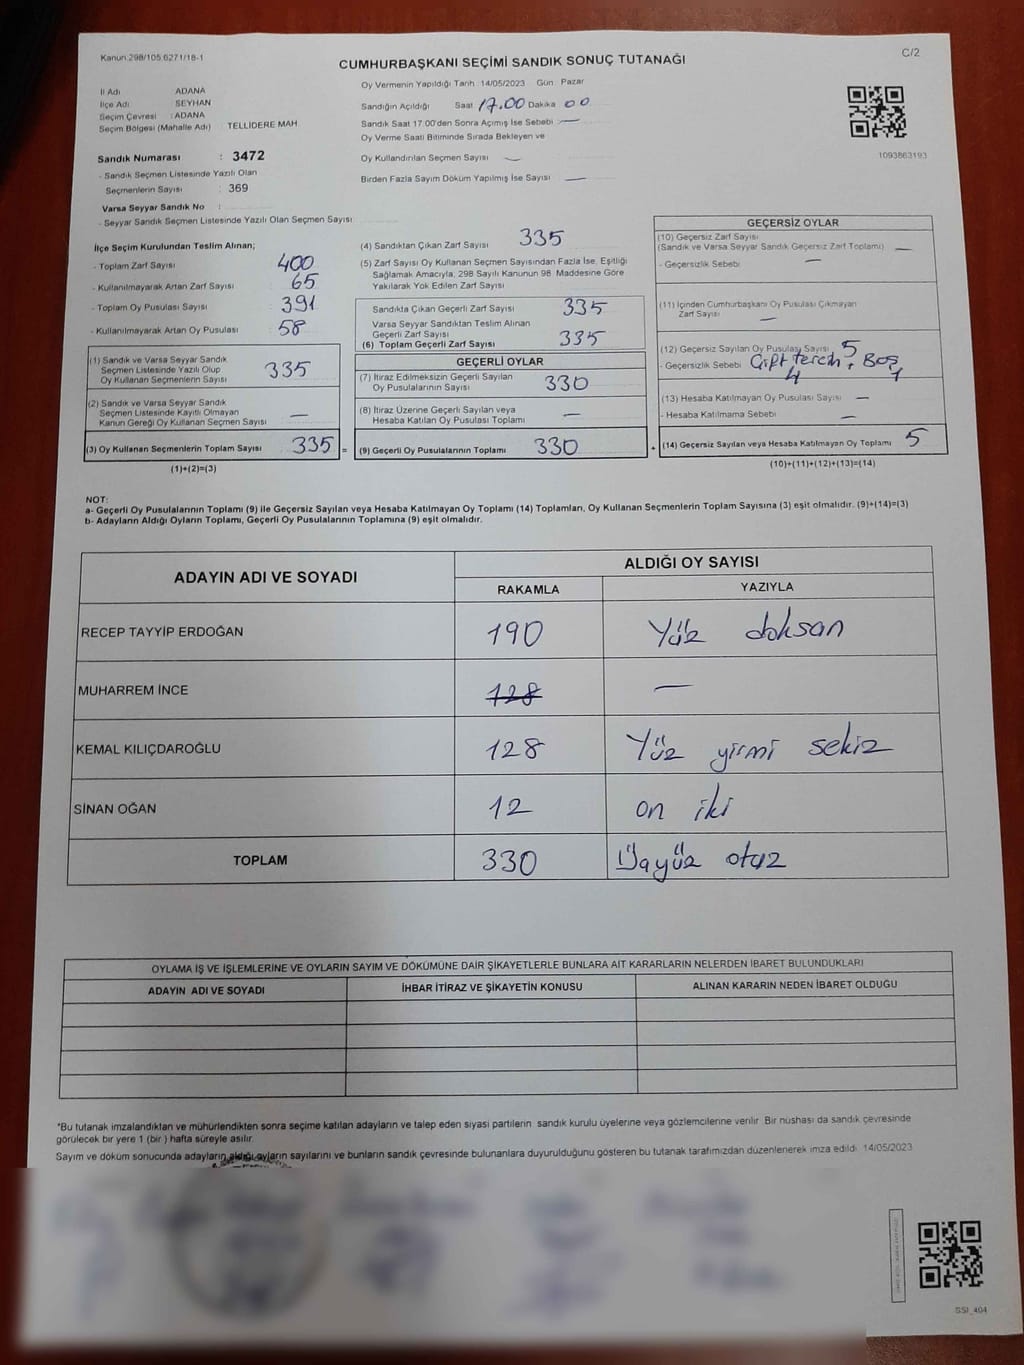 Kanun:298/105,6271/18-1
C/2
CUMHURBAŞKANI SEÇİMİ SANDIK SONUÇ TUTANAĞI
İl Adı : ADANA
İlçe Adı : SEYHAN
Seçim Çevresi : ADANA
Seçim Bölgesi (Mahalle Adı) : TELLİDERE MAH.
Sandık Numarası : 3472
- Sandık Seçmen Listesinde Yazılı Olan
Seçmenlerin Sayısı : 369
Varsa Seyyar Sandık No :
- Seyyar Sandık Seçmen Listesinde Yazılı Olan Seçmen Sayısı
Oy Vermenin Yapıldığı Tarih :14/05/2023 Gün: Pazar
Sandığın Açıldığı Saat 17.00 Dakika 00
Sandık Saat 17:00'den Sonra Açılmış İse Sebebi —
Oy Verme Saati Bitiminde Sırada Bekleyen ve
Oy Kullandırılan Seçmen Sayısı —
Birden Fazla Sayım Döküm Yapılmış İse Sayısı —
1093863193
İlçe Seçim Kurulundan Teslim Alınan;
- Toplam Zarf Sayısı : 400
- Kullanılmayarak Artan Zarf Sayısı : 65
- Toplam Oy Pusulası Sayısı : 391
- Kullanılmayarak Artan Oy Pusulası : 58
(1) Sandık ve Varsa Seyyar Sandık
Seçmen Listesinde Yazılı Olup
Oy Kullanan Seçmenlerin Sayısı 335
(2) Sandık ve Varsa Seyyar Sandık
Seçmen Listesinde Kayıtlı Olmayan
Kanun Gereği Oy Kullanan Seçmen Sayısı —
(3) Oy Kullanan Seçmenlerin Toplam Sayısı 335 =
(1)+(2)=(3)
(4) Sandıktan Çıkan Zarf Sayısı 335
(5) Zarf Sayısı Oy Kullanan Seçmen Sayısından Fazla İse, Eşitliği
Sağlamak Amacıyla, 298 Sayılı Kanunun 98. Maddesine Göre
Yakılarak Yok Edilen Zarf Sayısı
Sandıkta Çıkan Geçerli Zarf Sayısı 335
Varsa Seyyar Sandıktan Teslim Alınan
Geçerli Zarf Sayısı
(6) Toplam Geçerli Zarf Sayısı 335
GEÇERLİ OYLAR
(7) İtiraz Edilmeksizin Geçerli Sayılan
Oy Pusulalarının Sayısı 330
(8) İtiraz Üzerine Geçerli Sayılan veya
Hesaba Katılan Oy Pusulası Toplamı —
(9) Geçerli Oy Pusulalarının Toplamı 330 +
GEÇERSİZ OYLAR
(10) Geçersiz Zarf Sayısı
(Sandık ve Varsa Seyyar Sandık Geçersiz Zarf Toplamı) —
- Geçersizlik Sebebi —
(11) İçinden Cumhurbaşkanı Oy Pusulası Çıkmayan
Zarf Sayısı —
(12) Geçersiz Sayılan Oy Pusulası Sayısı 5
- Geçersizlik Sebebi Çift tercih 4, Boş 1
(13) Hesaba Katılmayan Oy Pusulası Sayısı —
- Hesaba Katılmama Sebebi —
(14) Geçersiz Sayılan veya Hesaba Katılmayan Oy Toplamı 5
(10)+(11)+(12)+(13)=(14)
NOT:
a- Geçerli Oy Pusulalarının Toplamı (9) ile Geçersiz Sayılan veya Hesaba Katılmayan Oy Toplamı (14) Toplamları, Oy Kullanan Seçmenlerin Toplam Sayısına (3) eşit olmalıdır. (9)+(14)=(3)
b- Adayların Aldığı Oyların Toplamı, Geçerli Oy Pusulalarının Toplamına (9) eşit olmalıdır.
ADAYIN ADI VE SOYADI
ALDIĞI OY SAYISI
RAKAMLA YAZIYLA
RECEP TAYYİP ERDOĞAN 190 Yüz doksan
MUHARREM İNCE 128 —
KEMAL KILIÇDAROĞLU 128 Yüz yirmi sekiz
SİNAN OĞAN 12 on iki
TOPLAM 330 Üçyüz otuz
OYLAMA İŞ VE İŞLEMLERİNE VE OYLARIN SAYIM VE DÖKÜMÜNE DAİR ŞİKAYETLERLE BUNLARA AİT KARARLARIN NELERDEN İBARET BULUNDUKLARI
ADAYIN ADI VE SOYADI İHBAR İTİRAZ VE ŞİKAYETİN KONUSU ALINAN KARARIN NEDEN İBARET OLDUĞU
*Bu tutanak imzalandıktan ve mühürlendikten sonra seçime katılan adayların ve talep eden siyasi partilerin sandık kurulu üyelerine veya gözlemcilerine verilir. Bir nüshası da sandık çevresinde
görülecek bir yere 1 (bir) hafta süreyle asılır.
Sayım ve döküm sonucunda adayların aldığı oyların sayılarını ve bunların sandık çevresinde bulunanlara duyurulduğunu gösteren bu tutanak tarafımızdan düzenlenerek imza edildi. 14/05/2023
SSI_404